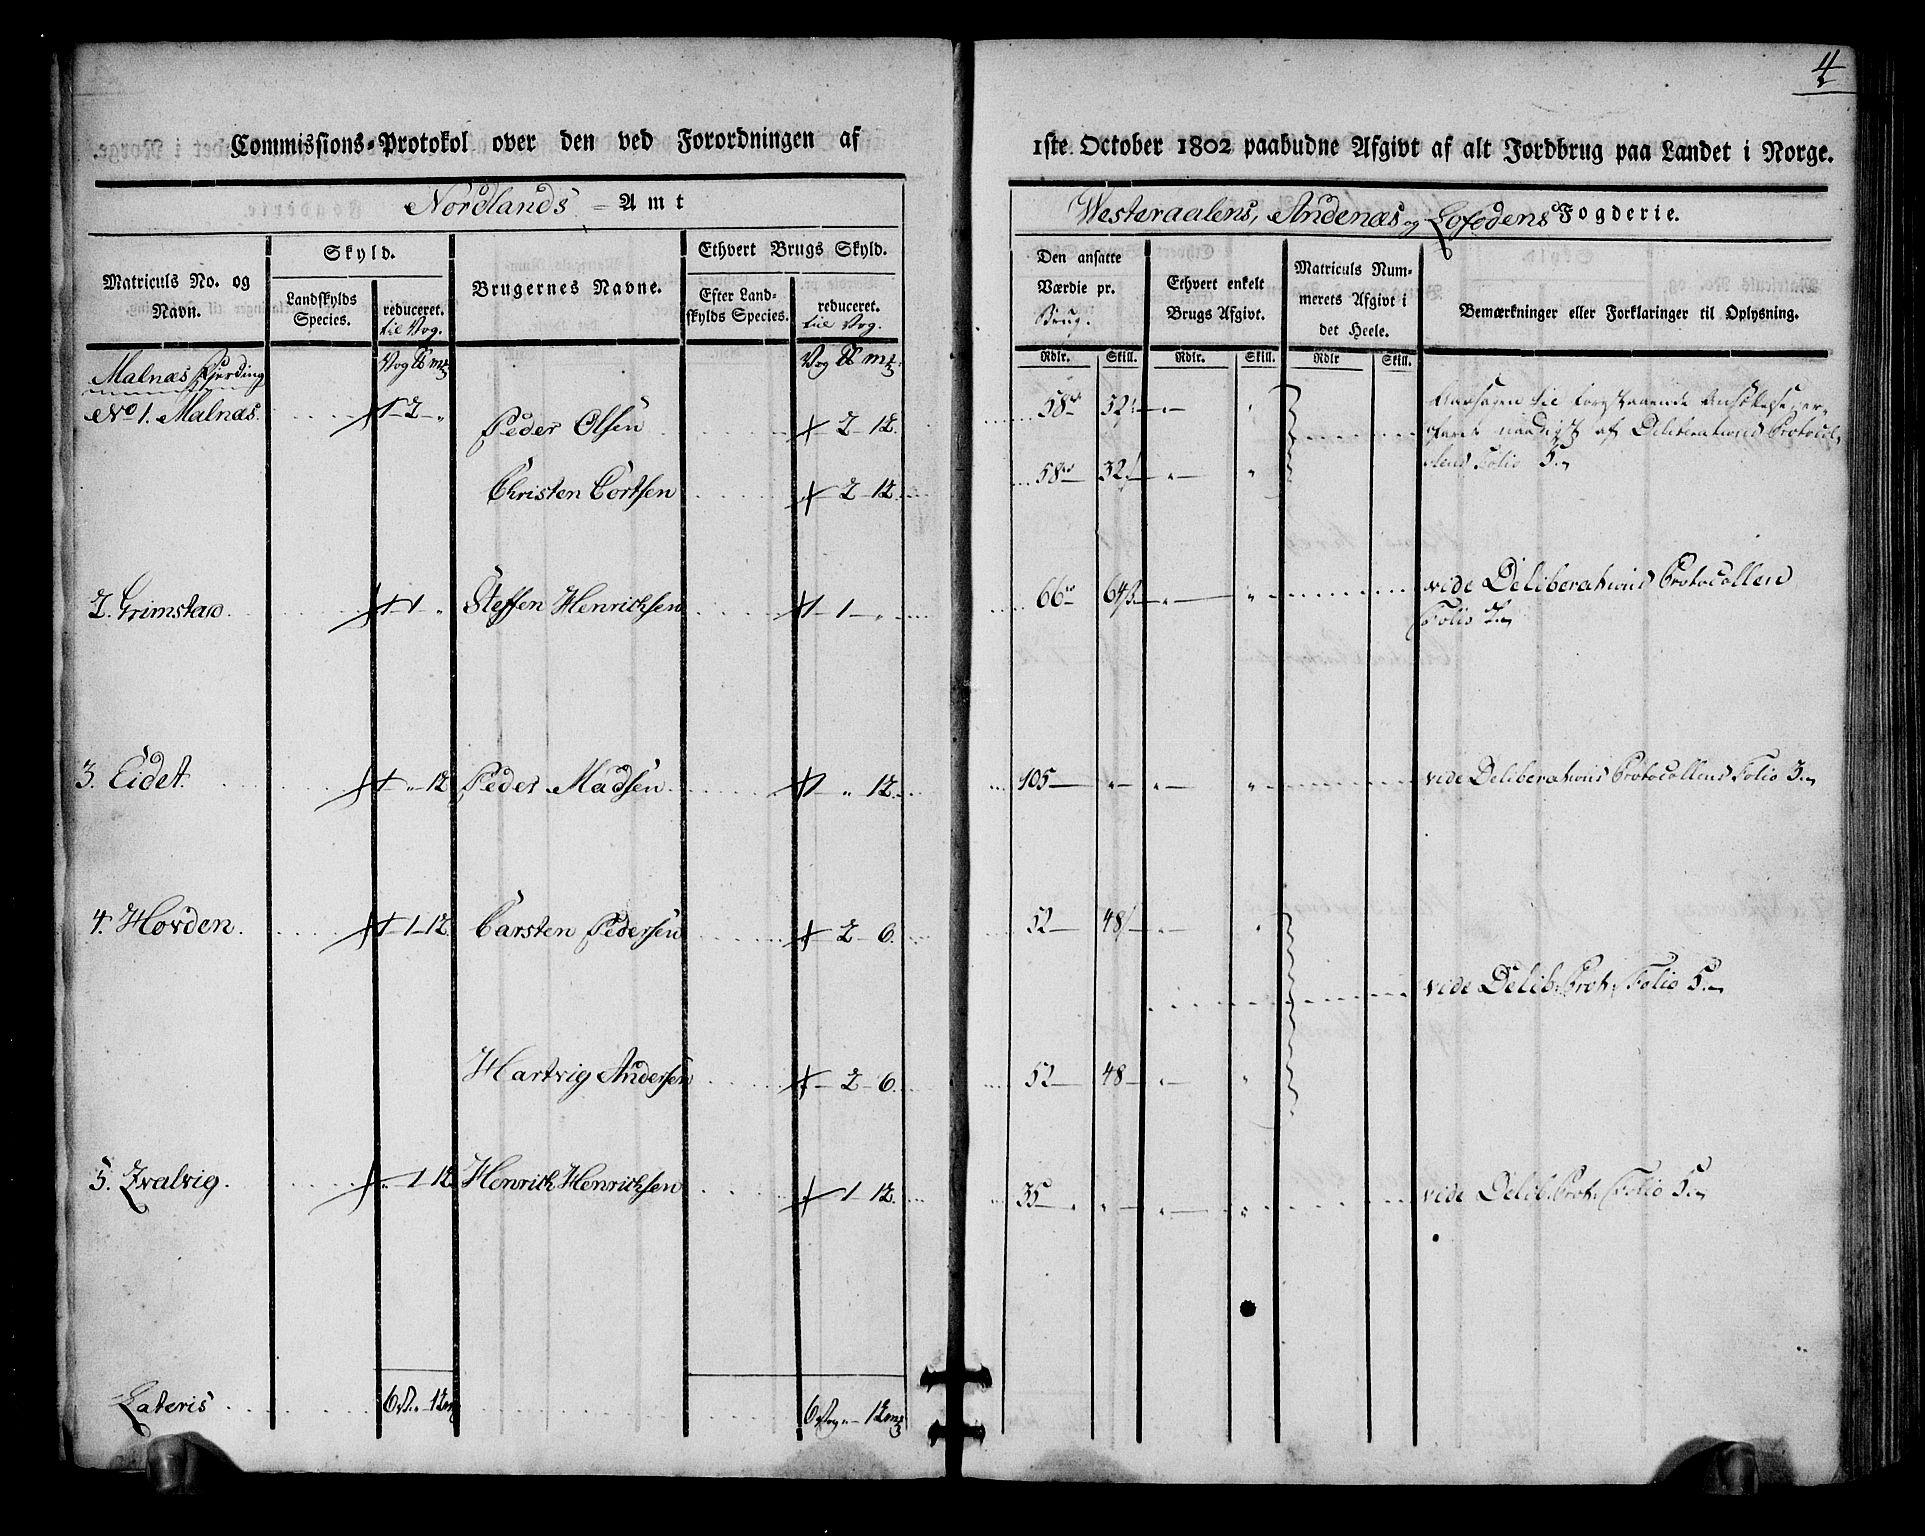 4
Commissions-Protokol over den ved Forordningen af
1ste October 1802 paabudne Afgivt af alt Jordbrug paa Landet i Norge.
Nordlands Amt
Westeraalens, Andenæs og Lofodens Fogderie.
Matriculs No. og Navn.
Skyld.
Landskylds Species.
reduceret. til Vog.
Brugernes Navne.
Ethvert Brugs Skyld.
Efter Landskylds Species.
reduceret. til Vog.
Den ansatte Værdie pr. Brug.
Ethvert enkelt Brugs Afgivt.
Matriculs Nummerets Afgivt i det Heele.
Bemærkninger eller Forklaringer til Oplysning.
Rdlr. Skill. Rdlr. Skill. Rdlr Skill.
Malnæs Fjerding
No 1. Malnæs. 1 - 2 - „ Peder Olsen 2 - 12. 58 32
Aarsagen til forestaaende Ansættelse er-
af Deliberations Protocol-
lens Folio 5.
Christen Cortsen 2 - 12. 58 32
2. Grimstad. 1 - 1 „ Steffen Henrichsen 1 - 1 - „ 66 64
vide Deliberations Protocollen
Folio 7.
3. Eidet. 1 „ - 12 Peder Madsen 1 - „ 12. 105 „
vide Deliberations Protocollens Folio 3.
4. Hovden. 1 - 1 - 12 Carsten Pedersen 2 - 6. 52 48
vide Delib. Prot. Folio 5.
Hartvig Andersen 2 - 6. 52 48
5. Qvalvig. „ 1 12 Henrich Henrichsen 1 - 12. 35 „
vide Delib. Prot. Folio 5.
Lateris 6 V. „ - 12 m 6 Vog „ - 12 m